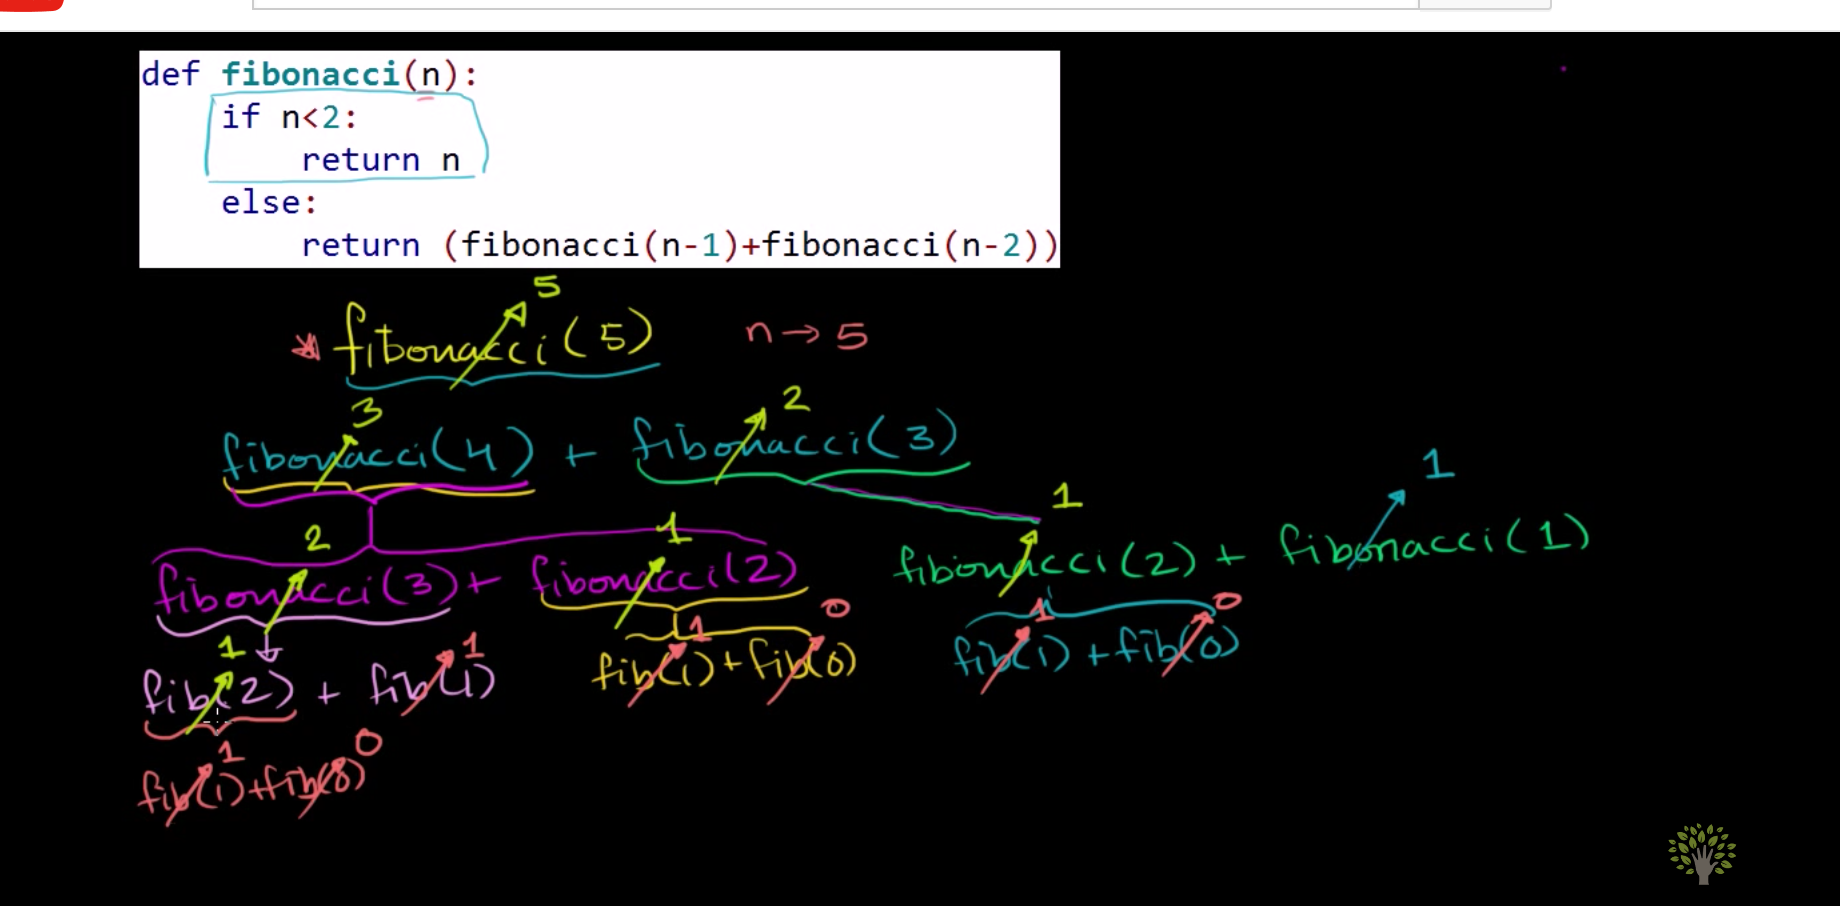 def fibonacci(n):
if n<2:
return n
else:
return (fibonacci(n-1)+fibonacci(n-2))
5
fibonacci(5) n→5
3 2
fibonacci(4) + fibonacci(3)
1 1
2 1
fibonacci(2) + fibonacci(1)
fibonacci(3) + fibonacci(2)
1 1 1 0 1 0
fib(1)+fib(0) fib(1)+fib(0)
fib(2) + fib(1)
1 0
fib(1)+fib(0)